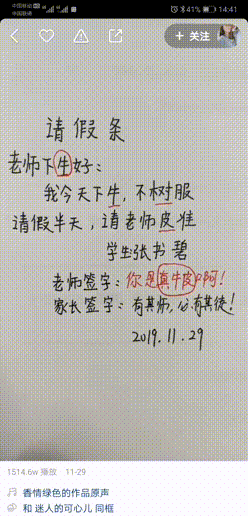 中国移动
中国联通
41% 14:41
+ 关注
请假条
老师下牛好：
我今天下牛，不树服
请假半天，请老师皮准
学生张书碧
老师签字：你是真牛皮啊！
家长签字：有其师，必有其徒！
2019.11.29
1514.6w 播放 11-29
香情绿色的作品原声
和 迷人的可心儿 同框